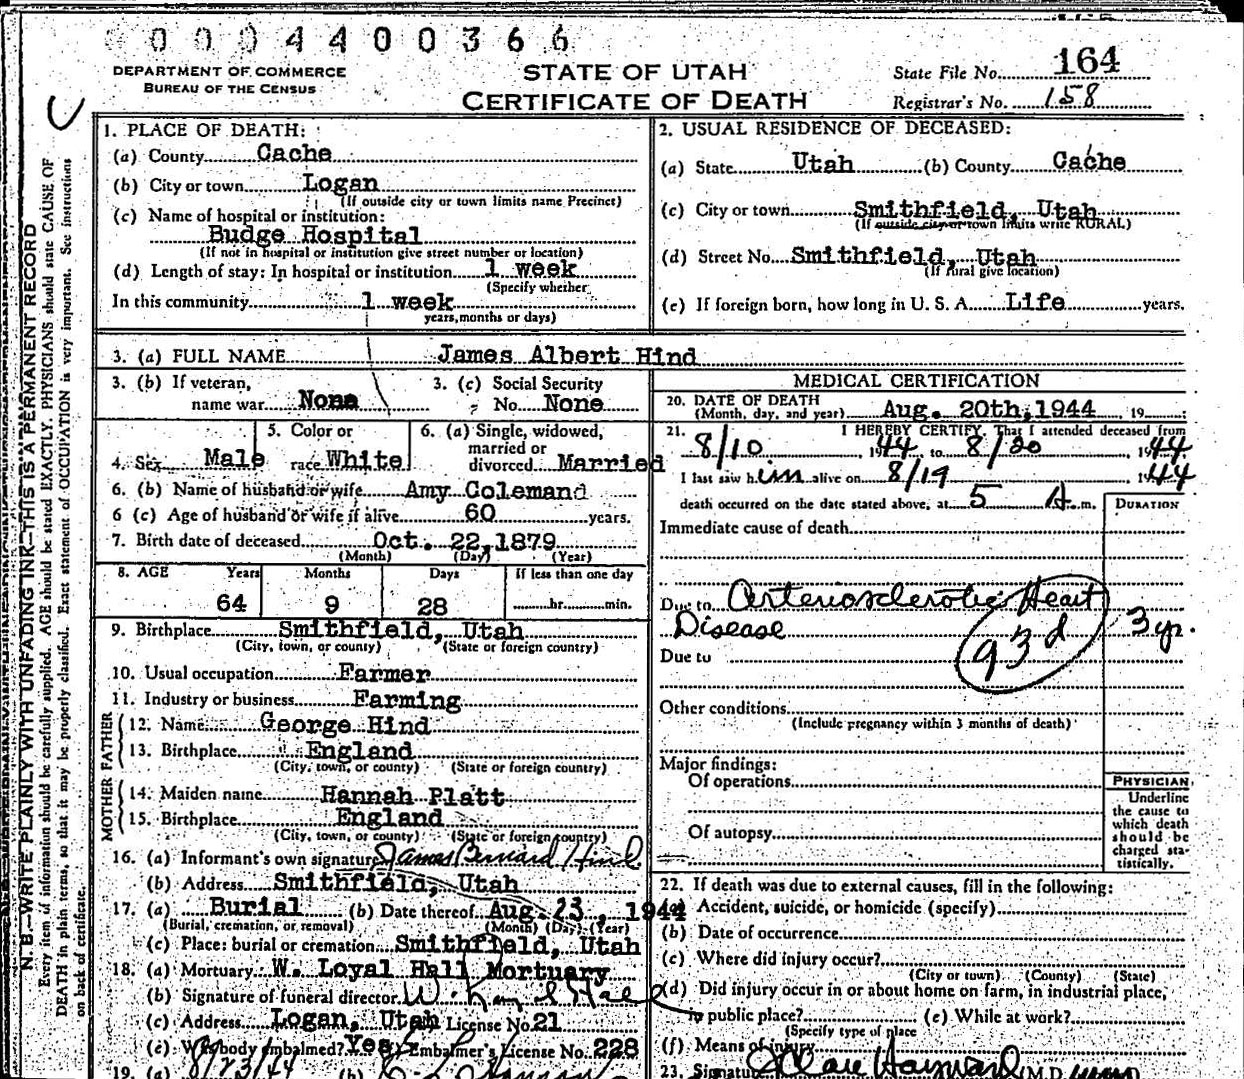 0004400366
DEPARTMENT OF COMMERCE
BUREAU OF THE CENSUS
STATE OF UTAH
CERTIFICATE OF DEATH
State File No. 164
Registrar's No. 158
N. B.—WRITE PLAINLY WITH UNFADING INK—THIS IS A PERMANENT RECORD
Every item of information should be carefully supplied. AGE should be stated EXACTLY. PHYSICIANS should state CAUSE OF
DEATH in plain terms, so that it may be properly classified. Exact statement of OCCUPATION is very important. See instructions
on back of certificate.
1. PLACE OF DEATH:
(a) County Cache
(b) City or town Logan
(If outside city or town limits name Precinct)
(c) Name of hospital or institution:
Budge Hospital
(If not in hospital or institution give street number or location)
(d) Length of stay: In hospital or institution 1 week
(Specify whether
In this community 1 week
years, months or days)
2. USUAL RESIDENCE OF DECEASED:
(a) State Utah (b) County Cache
(c) City or town Smithfield, Utah
(If outside city or town limits write RURAL)
(d) Street No. Smithfield, Utah
(If rural give location)
(e) If foreign born, how long in U. S. A. Life years.
3. (a) FULL NAME James Albert Hind
3. (b) If veteran,
name war None
3. (c) Social Security
No. None
4. Sex Male
5. Color or
race White
6. (a) Single, widowed,
married or
divorced Married
6. (b) Name of husband or wife Amy Colemand
6 (c) Age of husband or wife if alive 60 years.
7. Birth date of deceased Oct. 22, 1879
(Month) (Day) (Year)
8. AGE Years Months Days If less than one day
64 9 28 hr. min.
9. Birthplace Smithfield, Utah
(City, town, or county) (State or foreign country)
10. Usual occupation Farmer
11. Industry or business Farming
FATHER
12. Name George Hind
13. Birthplace England
(City, town, or county) (State or foreign country)
MOTHER
14. Maiden name Hannah Platt
15. Birthplace England
(City, town, or county) (State or foreign country)
16. (a) Informant's own signature James Bernard Hind
(b) Address Smithfield, Utah
17. (a) Burial (b) Date thereof Aug. 23, 1944
(Burial, cremation, or removal) (Month) (Day) (Year)
(c) Place: burial or cremation Smithfield, Utah
18. (a) Mortuary W. Loyal Hall Mortuary
(b) Signature of funeral director W. Loyal Hall
(c) Address Logan, Utah License No. 21
Was body embalmed? Yes Embalmer's License No. 228
19. (a) 8/23/44 (b)
MEDICAL CERTIFICATION
20. DATE OF DEATH
(Month, day, and year) Aug. 20th, 1944, 19
21. I HEREBY CERTIFY, That I attended deceased from
8/10, 1944 to 8/20, 1944
I last saw him alive on 8/19, 1944
death occurred on the date stated above, at 5 A. m.
DURATION
Immediate cause of death
Due to Arteriosclerotic Heart
Disease 3 yr.
93d
Due to
Other conditions
(Include pregnancy within 3 months of death)
Major findings:
Of operations
Of autopsy
PHYSICIAN
Underline
the cause to
which death
should be
charged sta-
tistically.
22. If death was due to external causes, fill in the following:
(a) Accident, suicide, or homicide (specify)
(b) Date of occurrence
(c) Where did injury occur?
(City or town) (County) (State)
(d) Did injury occur in or about home on farm, in industrial place,
in public place? (e) While at work?
(Specify type of place
(f) Means of injury
23. Signature Hayward (M.D.